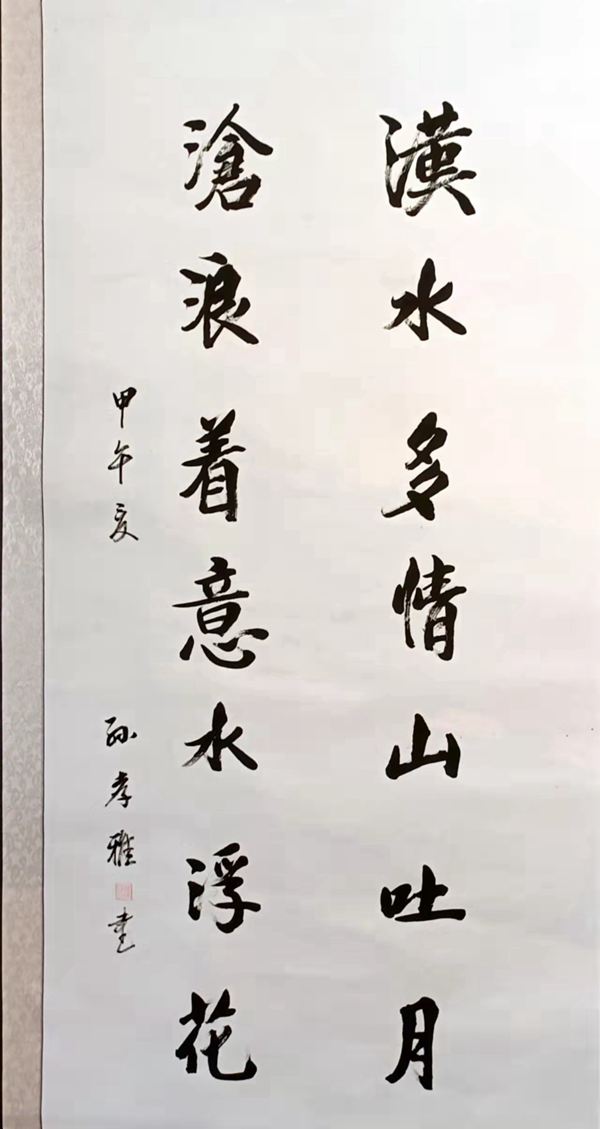 漢水多情山吐月
滄浪着意水浮花
甲午夏
孙孝雅書